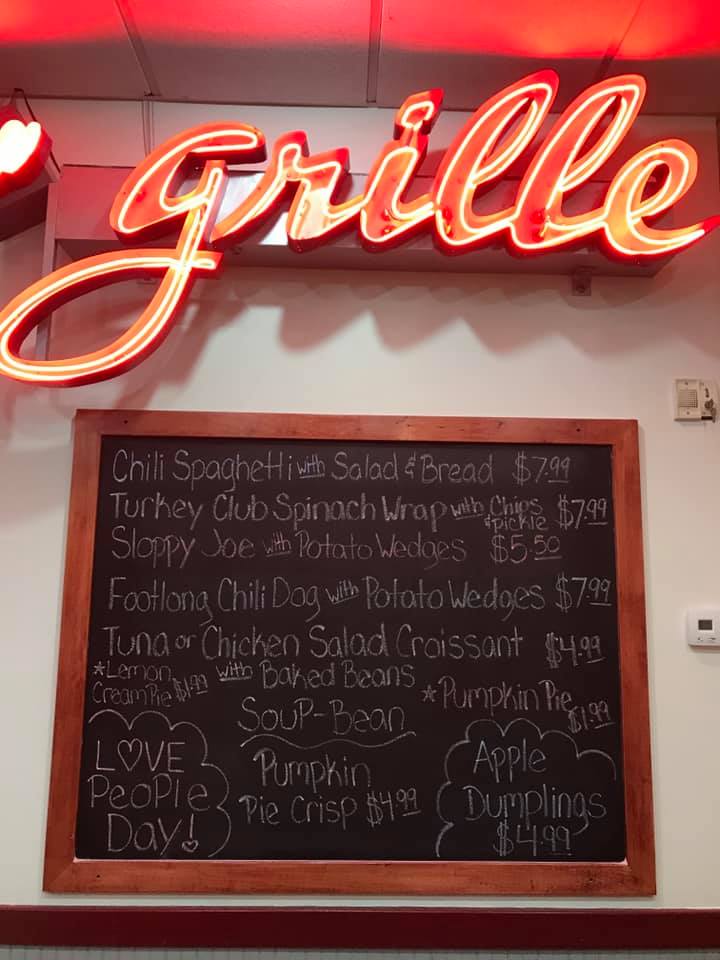 grille
Chili Spaghetti with Salad & Bread $7.99
Turkey Club Spinach Wrap with Chips & pickle $7.99
Sloppy Joe with Potato Wedges $5.50
Footlong Chili Dog with Potato Wedges $7.99
Tuna or Chicken Salad Croissant $4.99
with Baked Beans
*Lemon
Cream Pie $1.99
*Pumpkin Pie $1.99
SouP-Bean
LOVE
PeoPle
Day!
Pumpkin
Pie Crisp $4.99
Apple
Dumplings
$4.99